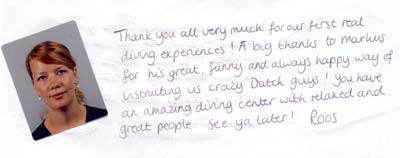 Thank you all very much for our first real
diving experiences! A big thanks to Markus
for his great, funny and always happy way of
instructing us crazy Dutch guys! You have
an amazing diving center with relaxed and
great people. See ya later! Roos